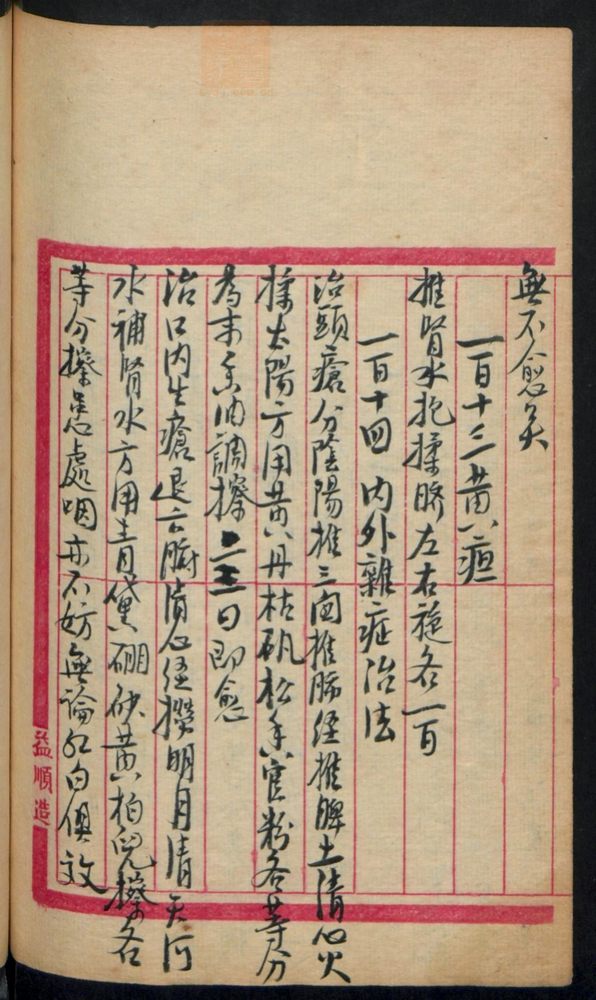 無不愈矣
一百十三黄疸
推腎水抱揉臍左右旋各一百
一百十四 内外雜症治法
治頭瘡分陰陽推三関推肺經推脾土清心火
揉太陽方用黄丹枯矾松香官粉各等分
為末香油調擦二三日即愈
治口内生瘡退六腑清心經撈明月清天河
水補腎水方用青黛硼砂黄柏兒擦各
等分擦患處咽亦不妨無論紅白俱效
益順造